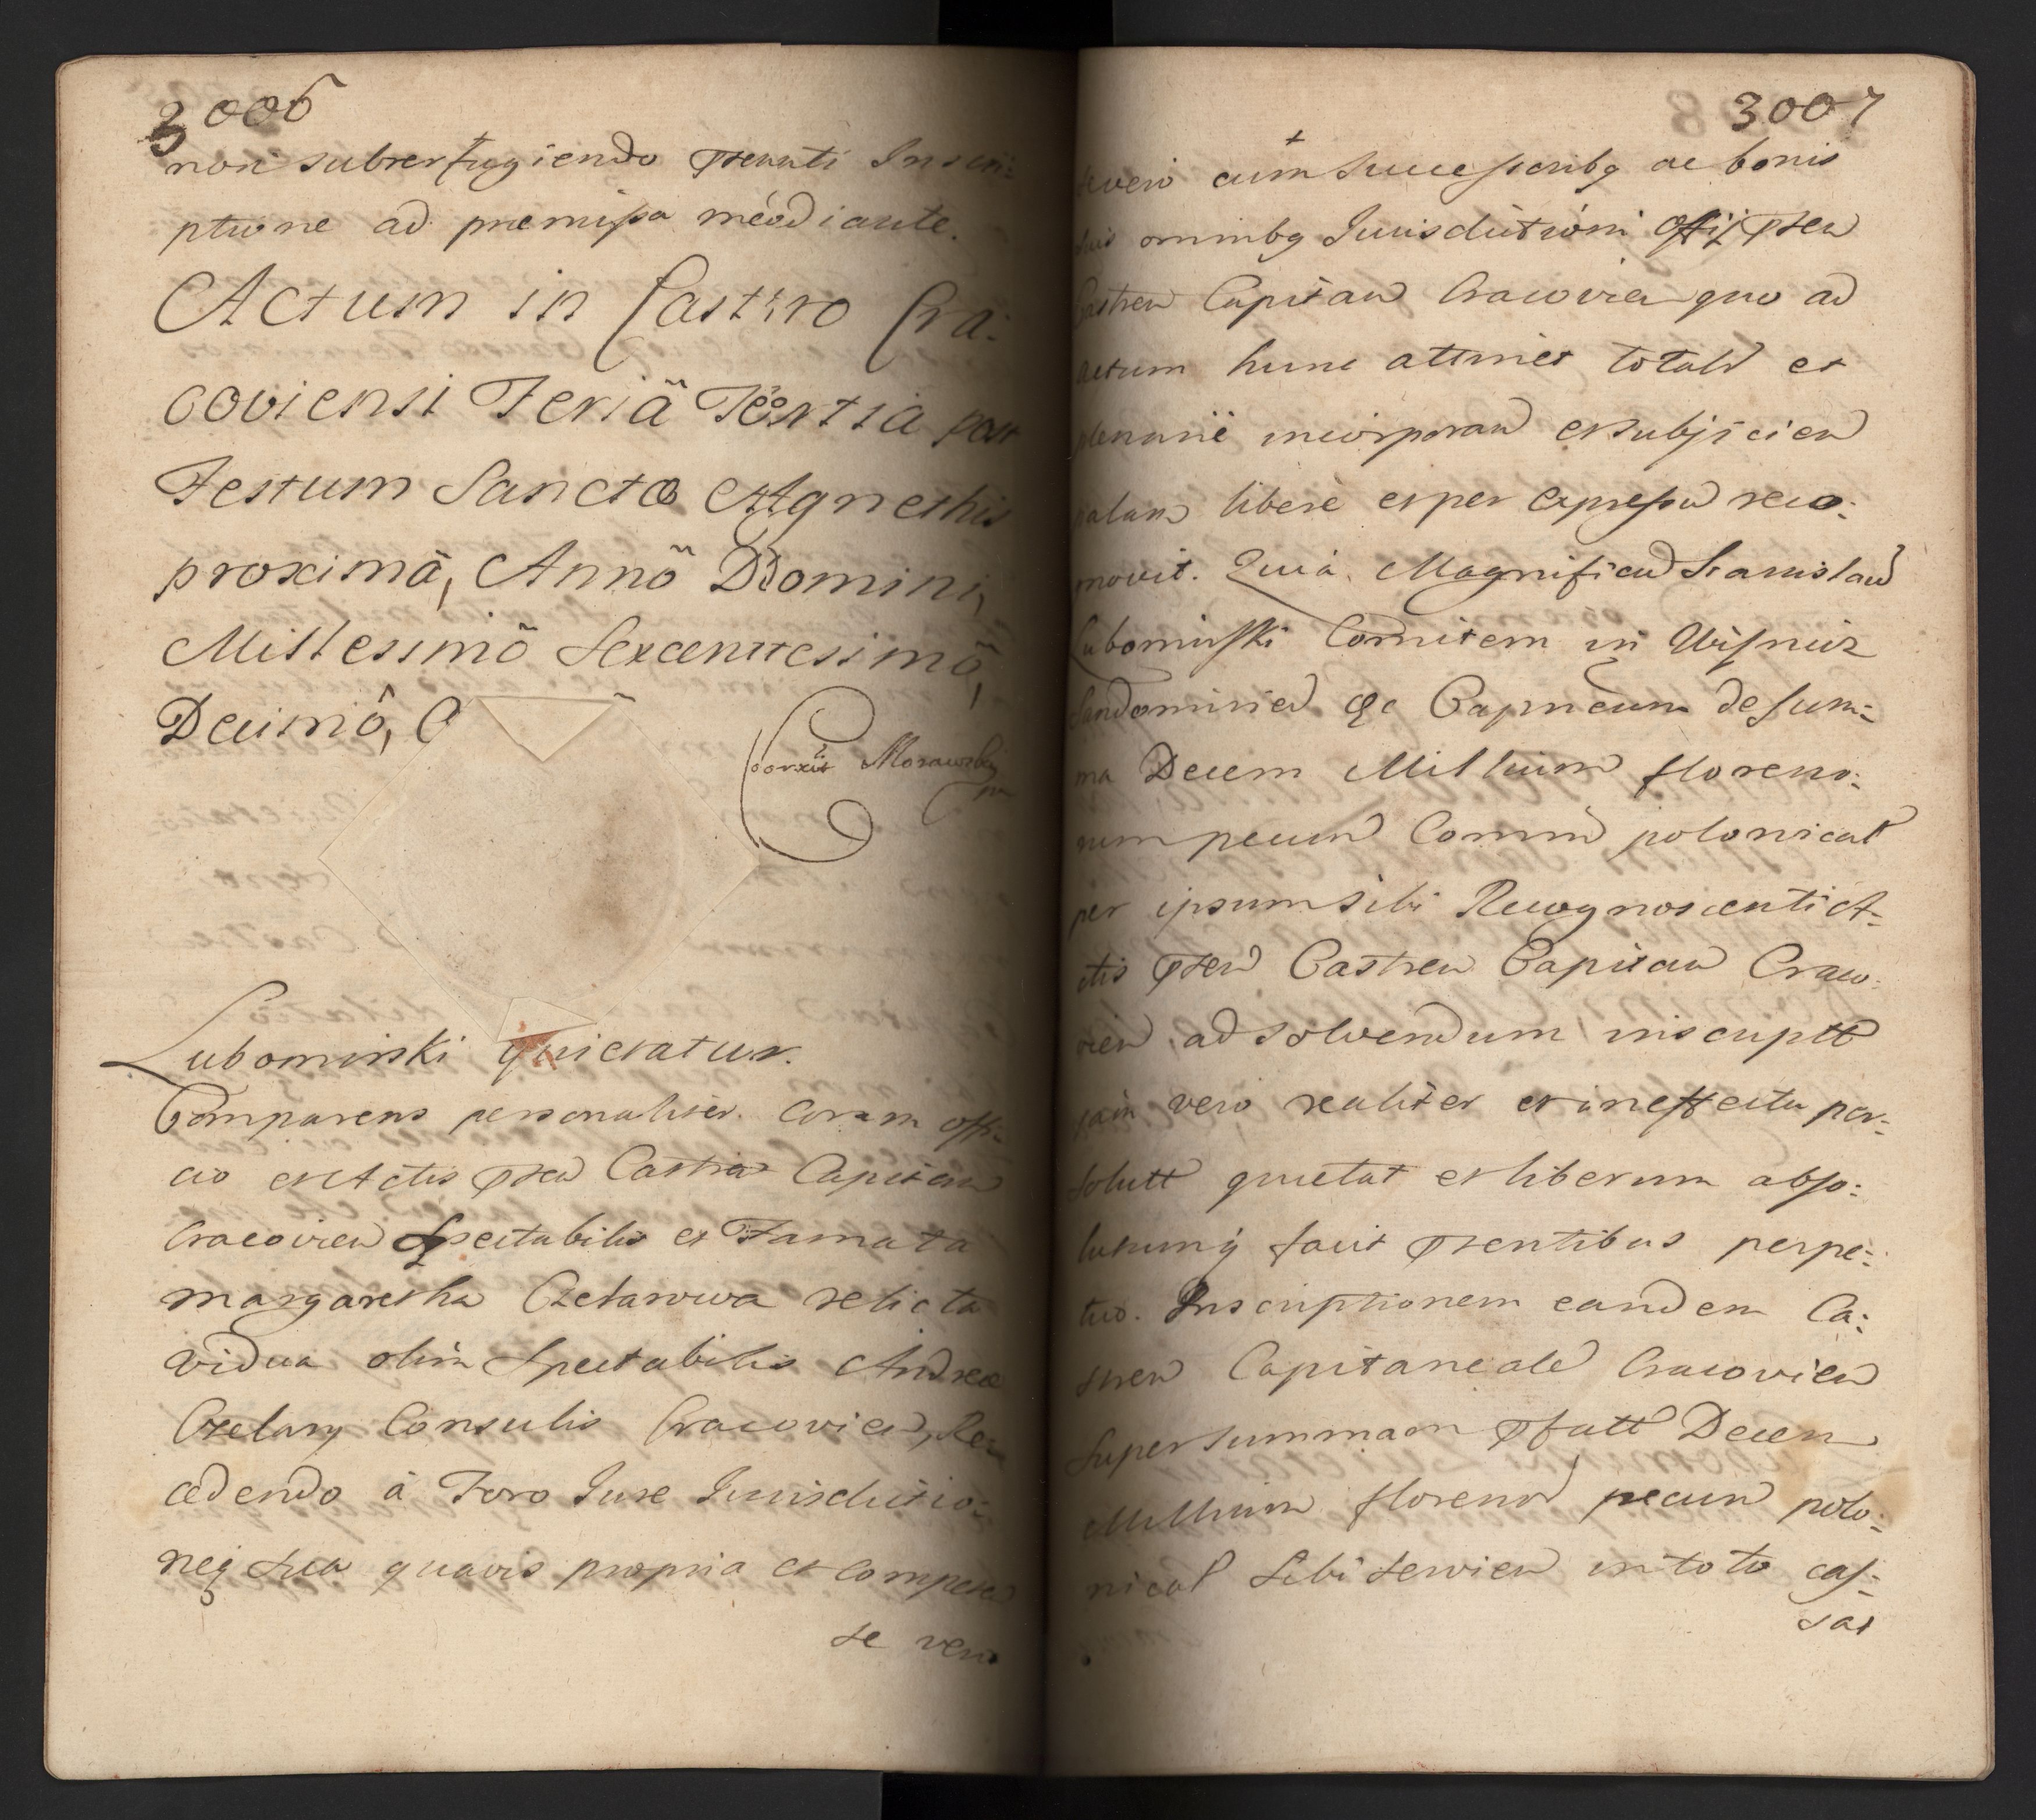 3006
non subterfugiendo pñenti Inscri:
ptione ad præmissa mediante.
Actum in Castro Cra:
coviensi Feriâ Tertia post
Festum Sanctæ Agnethis
proximâ, Annô Domini,
Millesimô Sexcentesimô,
Decimô,
Corrxit Morawski
mp
Lubomirski quietatur.
Comparens personaliter coram offi:
cio et Actis pñen Castren Capitan
Cracovien Spectabilis et Famata
Margaretha Czelarowa relicta
vidua olim Spectabilis Andreæ
Czelary Consulis Cracovien, Re:
cedendo â Foro Jure Jurisdictio:
neq sua quavis propria et competen
se vero
3007
se vero cum Successoribq ac bonis
suis omnibq Jurisdictioni Offij pñen
Castren Capitan Cracovien quo ad
actum hunc attinet totalr et
plenariè incorporan et subjicien
palam liberè et per expressu reco:
gnovit. Quia Magnificu Stanislau
Lubomirski Comitem in Wisnicz
Sandomirien &c Capneum de sum:
ma Decem Millium floreno:
rum pecun Commu polonicat
per ipsum sibi Recognoscenti A:
ctis pñen Castren Capitan Craco:
vien ad solvendum inscriptt
jam vero realiter et in effectu per:
solutt quietat et liberum abso:
lutumq facit pñentibus perpe:
tuo. Inscriptionem eandem Ca:
stren Capitaneale Cracovien
Super summam pfatt Decem
Millium florenor pecun polo:
nical Sibi servien in toto cas:
sat